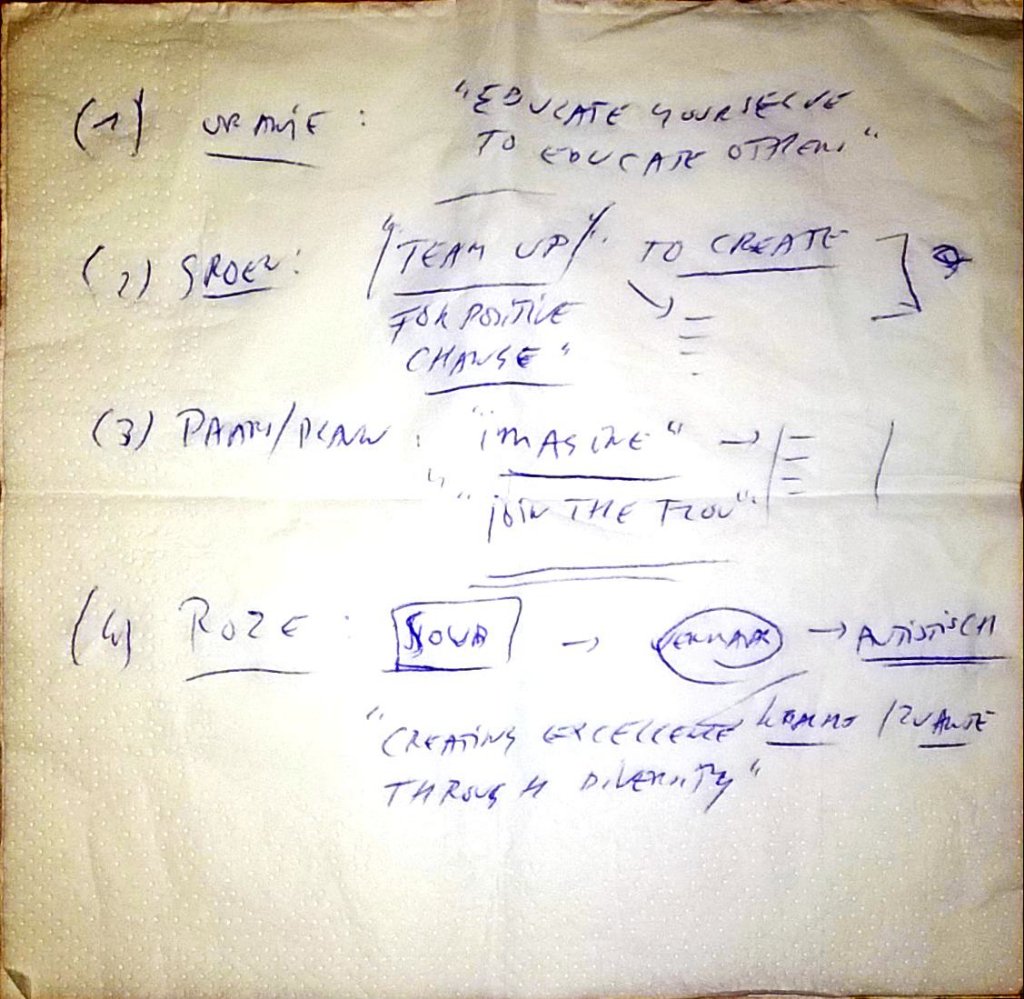 (1) ORANJE : "EDUCATE YOURSELVE
TO EDUCATE OTHERS"
(2) GROEN : "TEAM UP" TO CREATE
FOR POSITIVE
CHANGE"
(3) PAARS/ : "IMAGINE" →
"JOIN THE FLOW".
(4) ROZE : → → ARTISTISCH
"CREATING EXCELLENCE
THROUGH DIVERSITY"